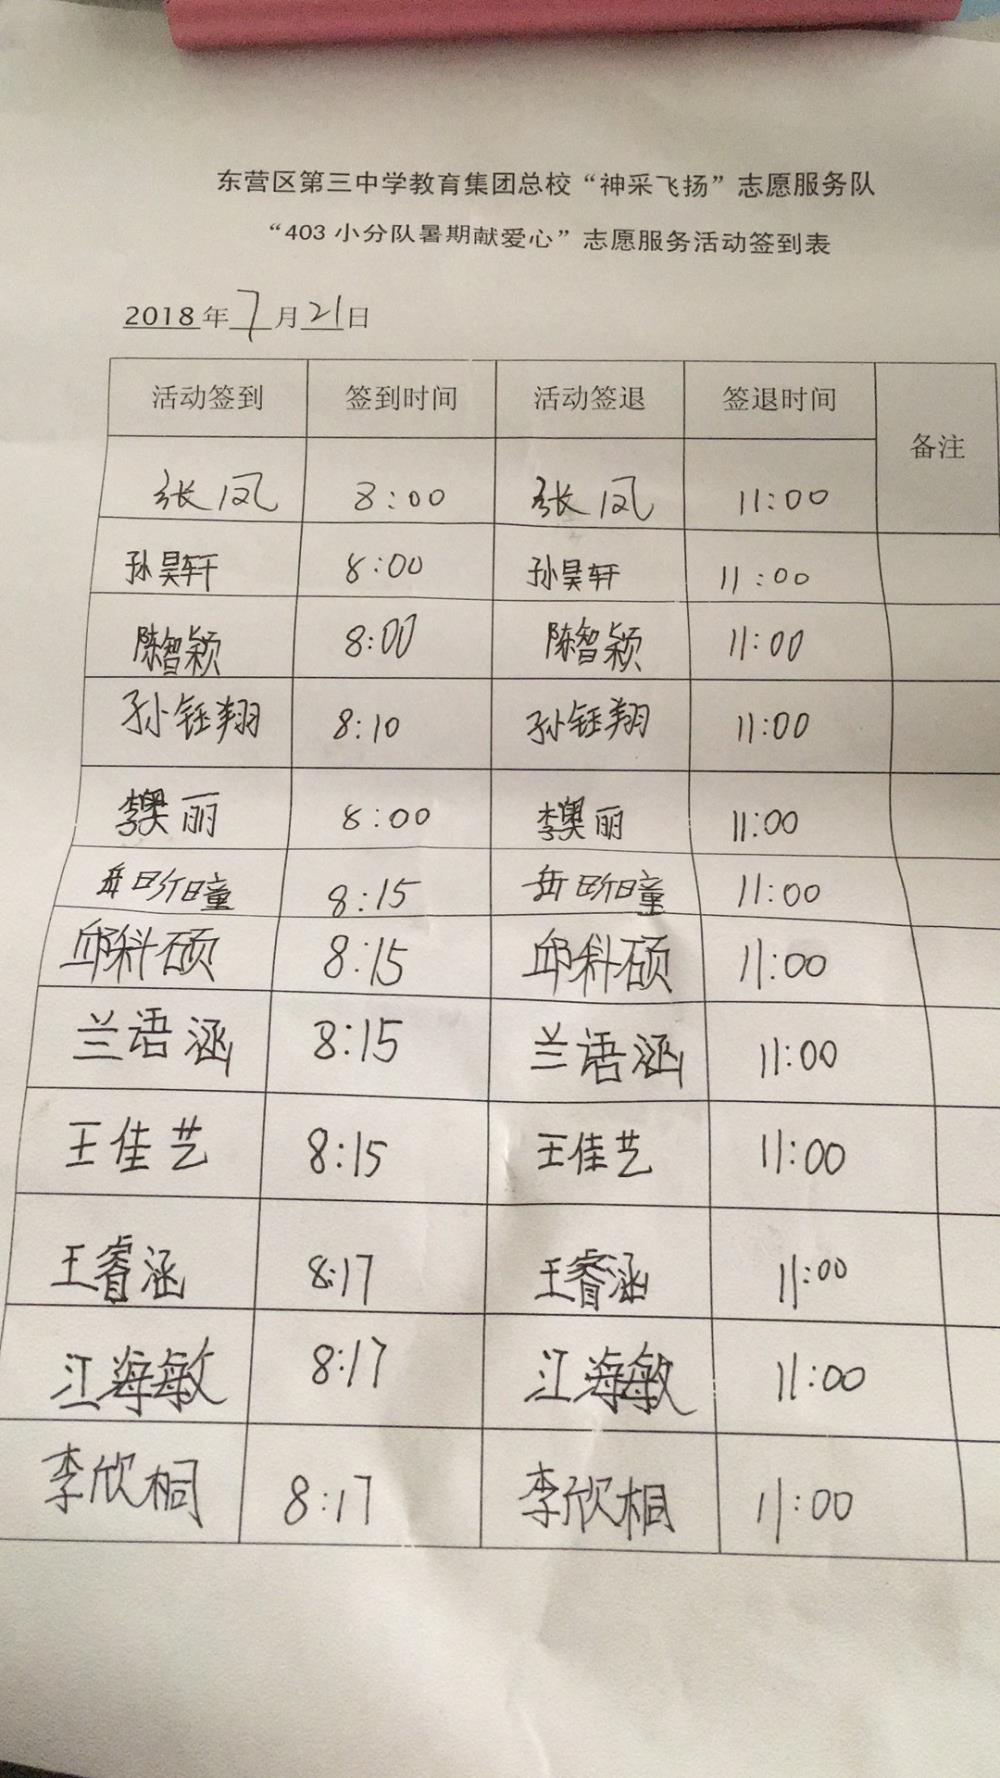 东营区第三中学教育集团总校“神采飞扬”志愿服务队
“403 小分队暑期献爱心”志愿服务活动签到表
2018年 7 月 21 日
活动签到 签到时间 活动签退 签退时间 备注
张凤 8:00 张凤 11:00
孙昊轩 8:00 孙昊轩 11:00
陈智颖 8:00 陈智颖 11:00
孙钰翔 8:10 孙钰翔 11:00
李奥丽 8:00 李奥丽 11:00
岳昀曈 8:15 岳昀曈 11:00
邱科硕 8:15 邱科硕 11:00
兰语涵 8:15 兰语涵 11:00
王佳艺 8:15 王佳艺 11:00
王睿涵 8:17 王睿涵 11:00
江海敏 8:17 江海敏 11:00
李欣桐 8:17 李欣桐 11:00